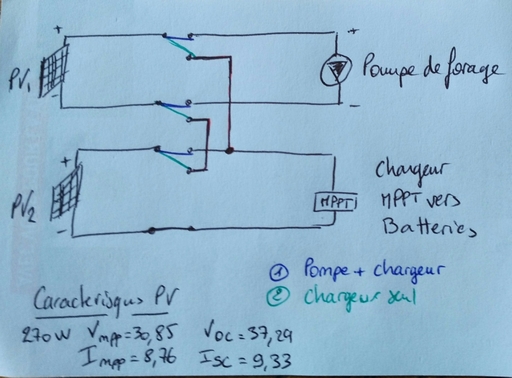 +
+
PV1
Pompe de forage
-
-
+
PV2
Chargeur
MPPT vers
Batteries
MPPT
-
① Pompe + chargeur
② Chargeur seul
Caracterisques PV
270W Vmpp=30,85 Voc=37,29
Impp=8,76 Isc=9,33